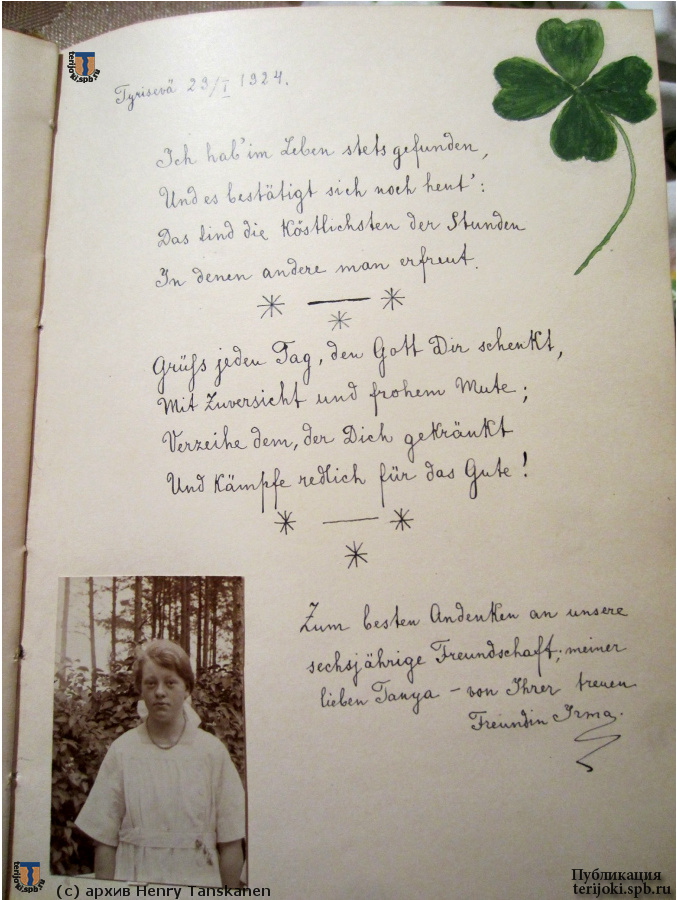 terijoki.spb.ru
Tyrisevä 29/I 1924.
Ich hab' im Leben stets gefunden,
Und es bestätigt sich noch heut':
Das sind die Köstlichsten der Stunden
In denen andere man erfreut.
Grüss jeden Tag, den Gott Dir schenkt,
Mit Zuversicht und frohem Mute;
Verzeihe dem, der Dich gekränkt
Und Kämpfe redlich für das Gute!
Zum besten Andenken an unsere
sechsjährige Freundschaft, meiner
lieben Tanya – von Ihrer treuen
Freundin Irma.
terijoki.spb.ru
(c) архив Henry Tanskanen
Публикация
terijoki.spb.ru